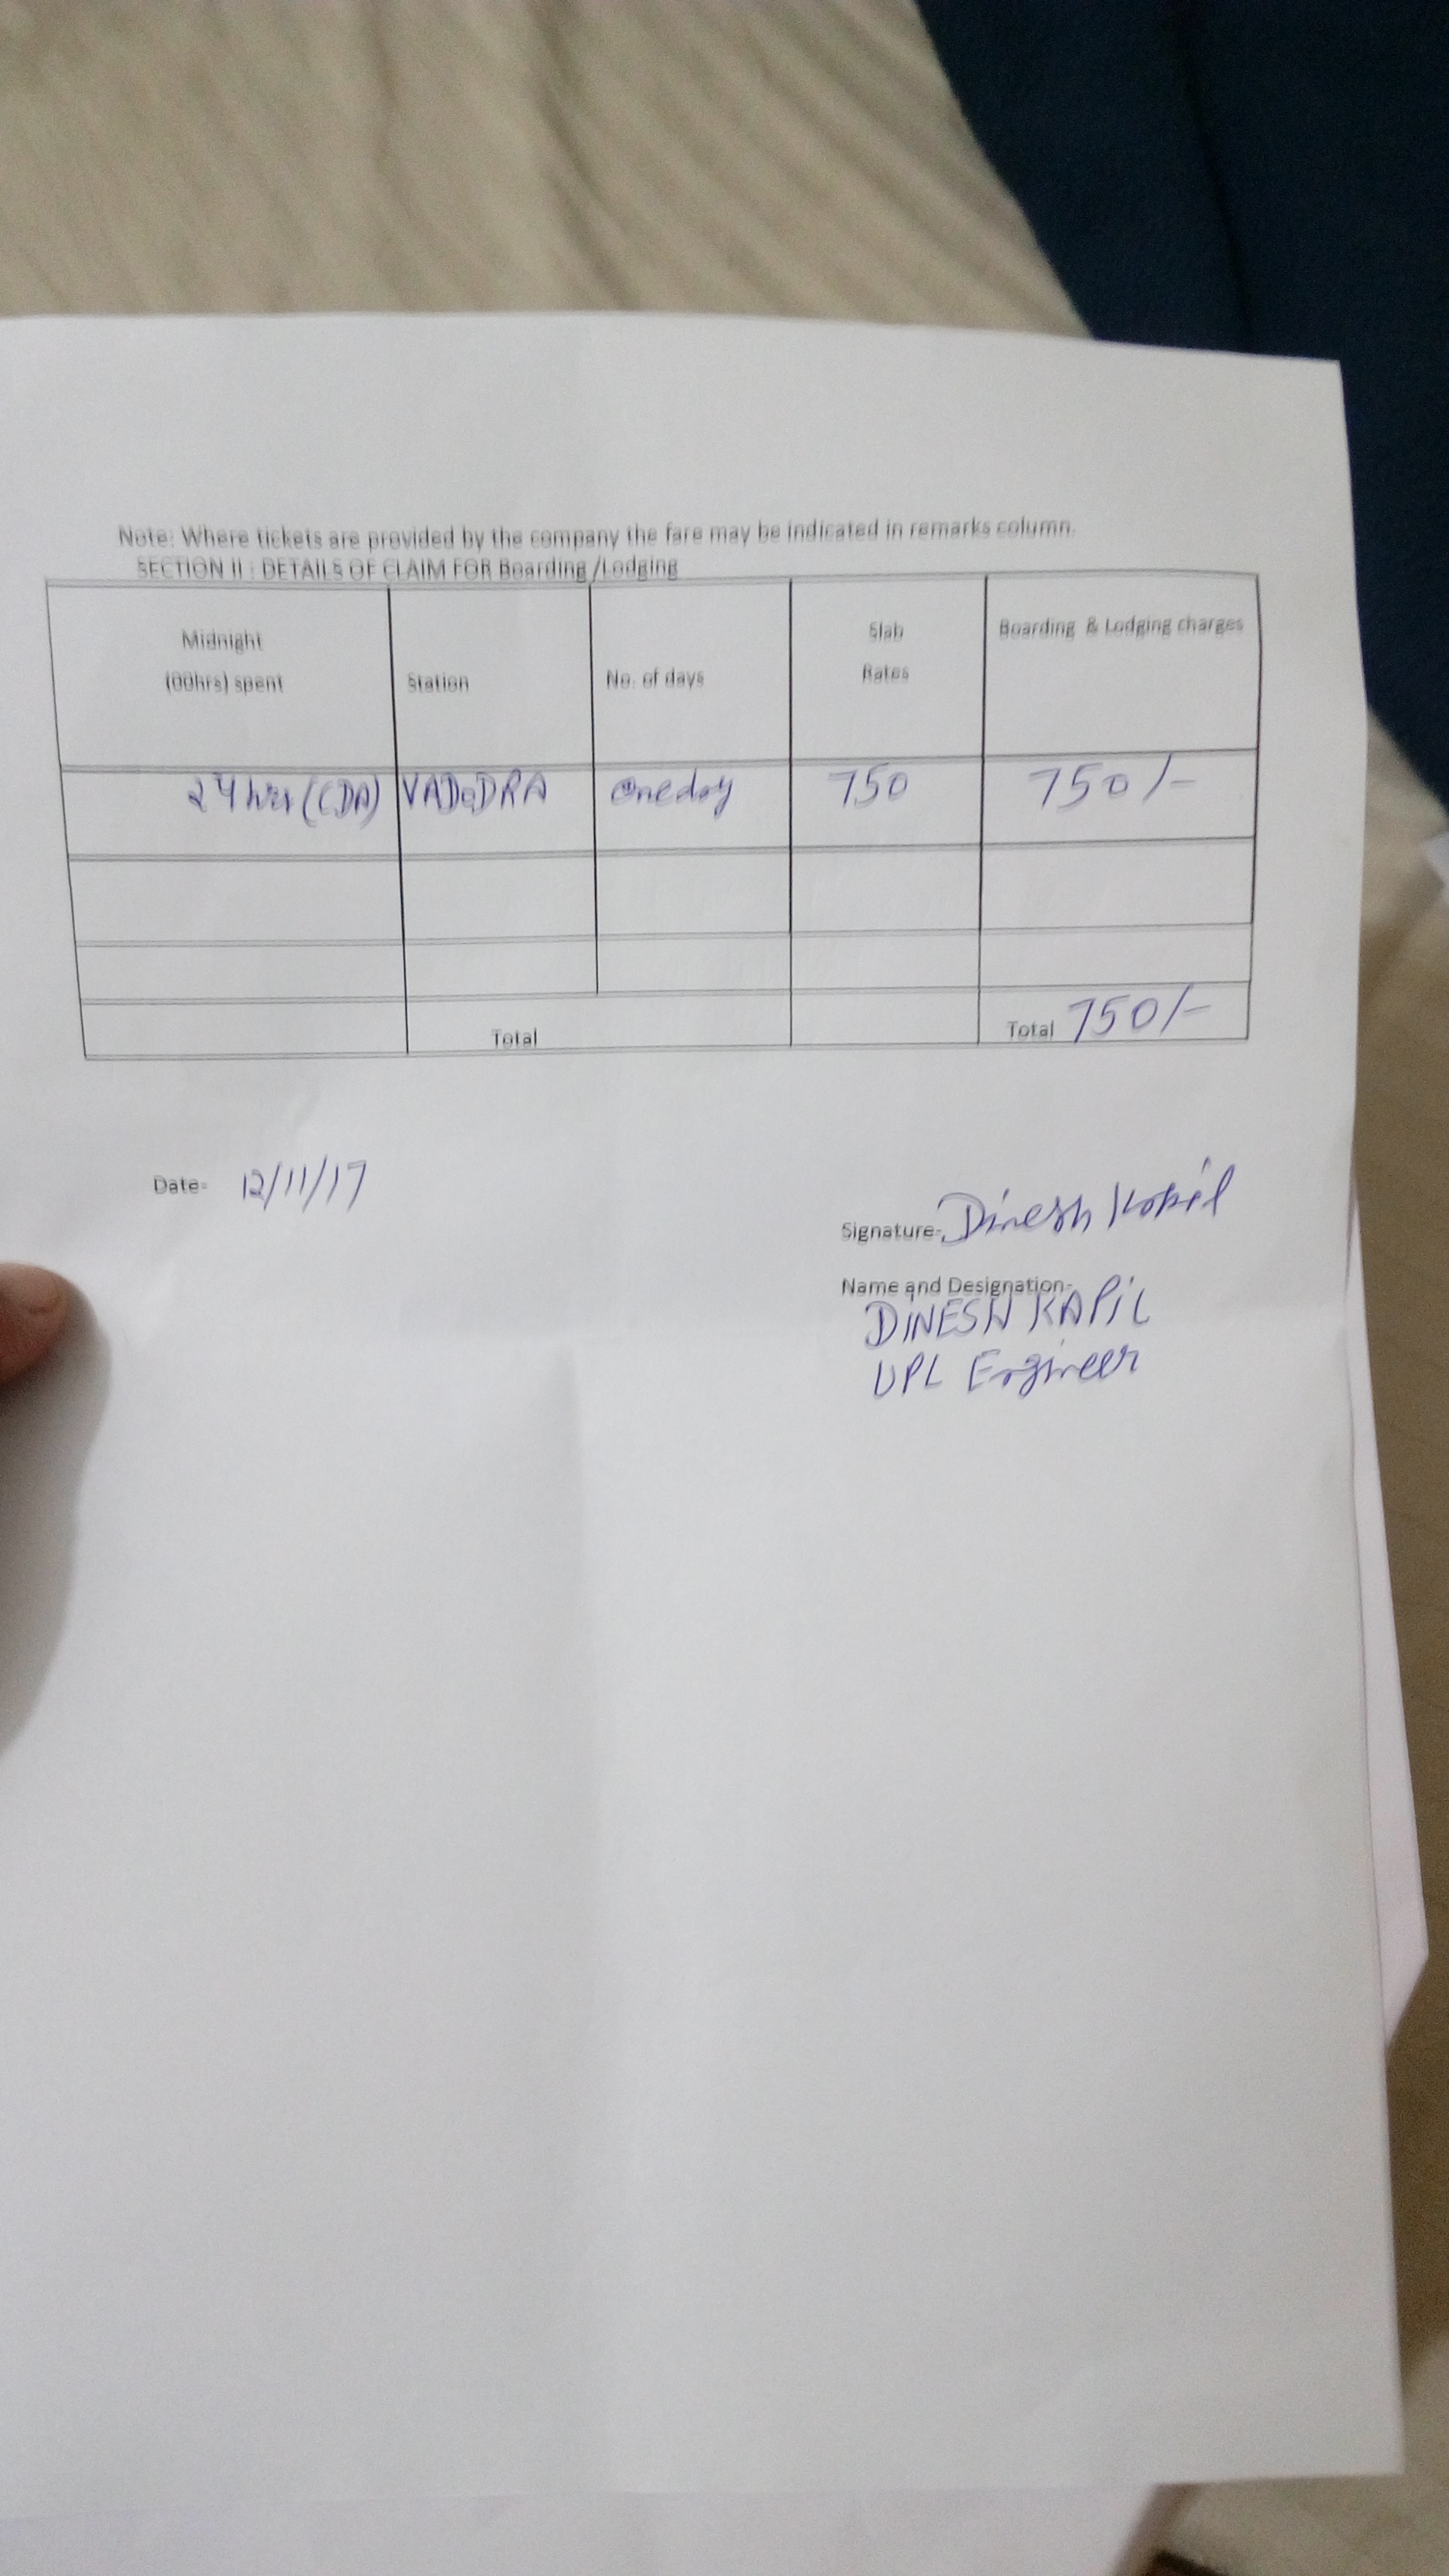 Note: Where tickets are provided by the company the fare may be indicated in remarks column.
SECTION II : DETAILS OF CLAIM FOR Boarding /Lodging
Midnight
(00hrs) spent
Station
No. of days
Slab
Rates
Boarding & Lodging charges
24 hrs (CDA) VADODRA one day 750 750/-
Total Total 750/-
Date- 12/11/17
Signature- Dinesh Kapil
Name and Designation-
DINESH KAPIL
UPL Engineer